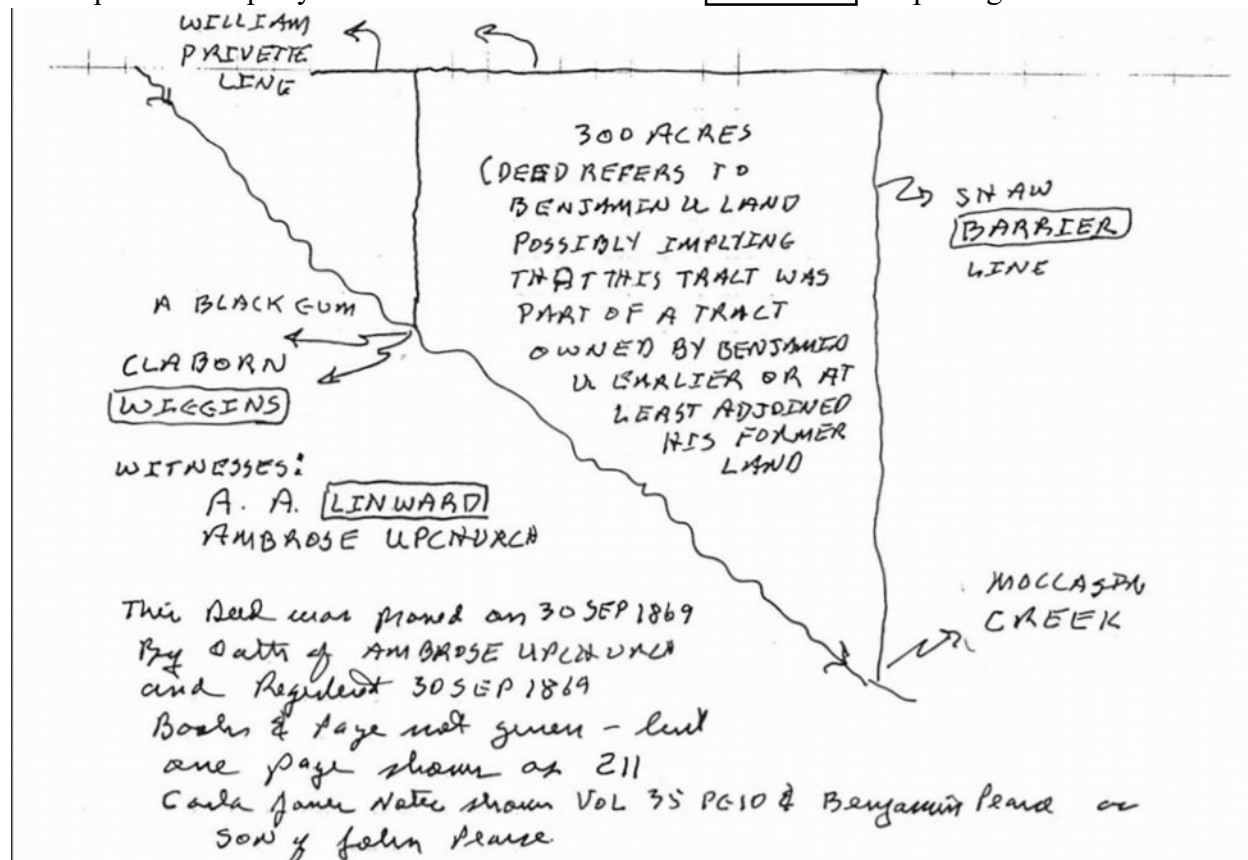 WILLIAM
PRIVETTE
LINE
300 ACRES
(DEED REFERS TO
BENJAMIN U LAND
POSSIBLY IMPLYING
THAT THIS TRACT WAS
PART OF A TRACT
OWNED BY BENJAMIN
U EARLIER OR AT
LEAST ADJOINED
HIS FORMER
LAND
SHAW
BARRIER
LINE
A BLACK GUM
CLABORN
WIGGINS
WITNESSES:
A. A. LINWARD
AMBROSE UPCHURCH
MOCCASIN
CREEK
This Deed was proved on 30 SEP 1869
By Oath of AMBROSE UPCHURCH
and Registered 30 SEP 1869
Books & Page not given - but
one page shown as 211
Carla Jones Notes shown VOL 35 PG 10 & Benjamin Pearce as
SON of John Pearce